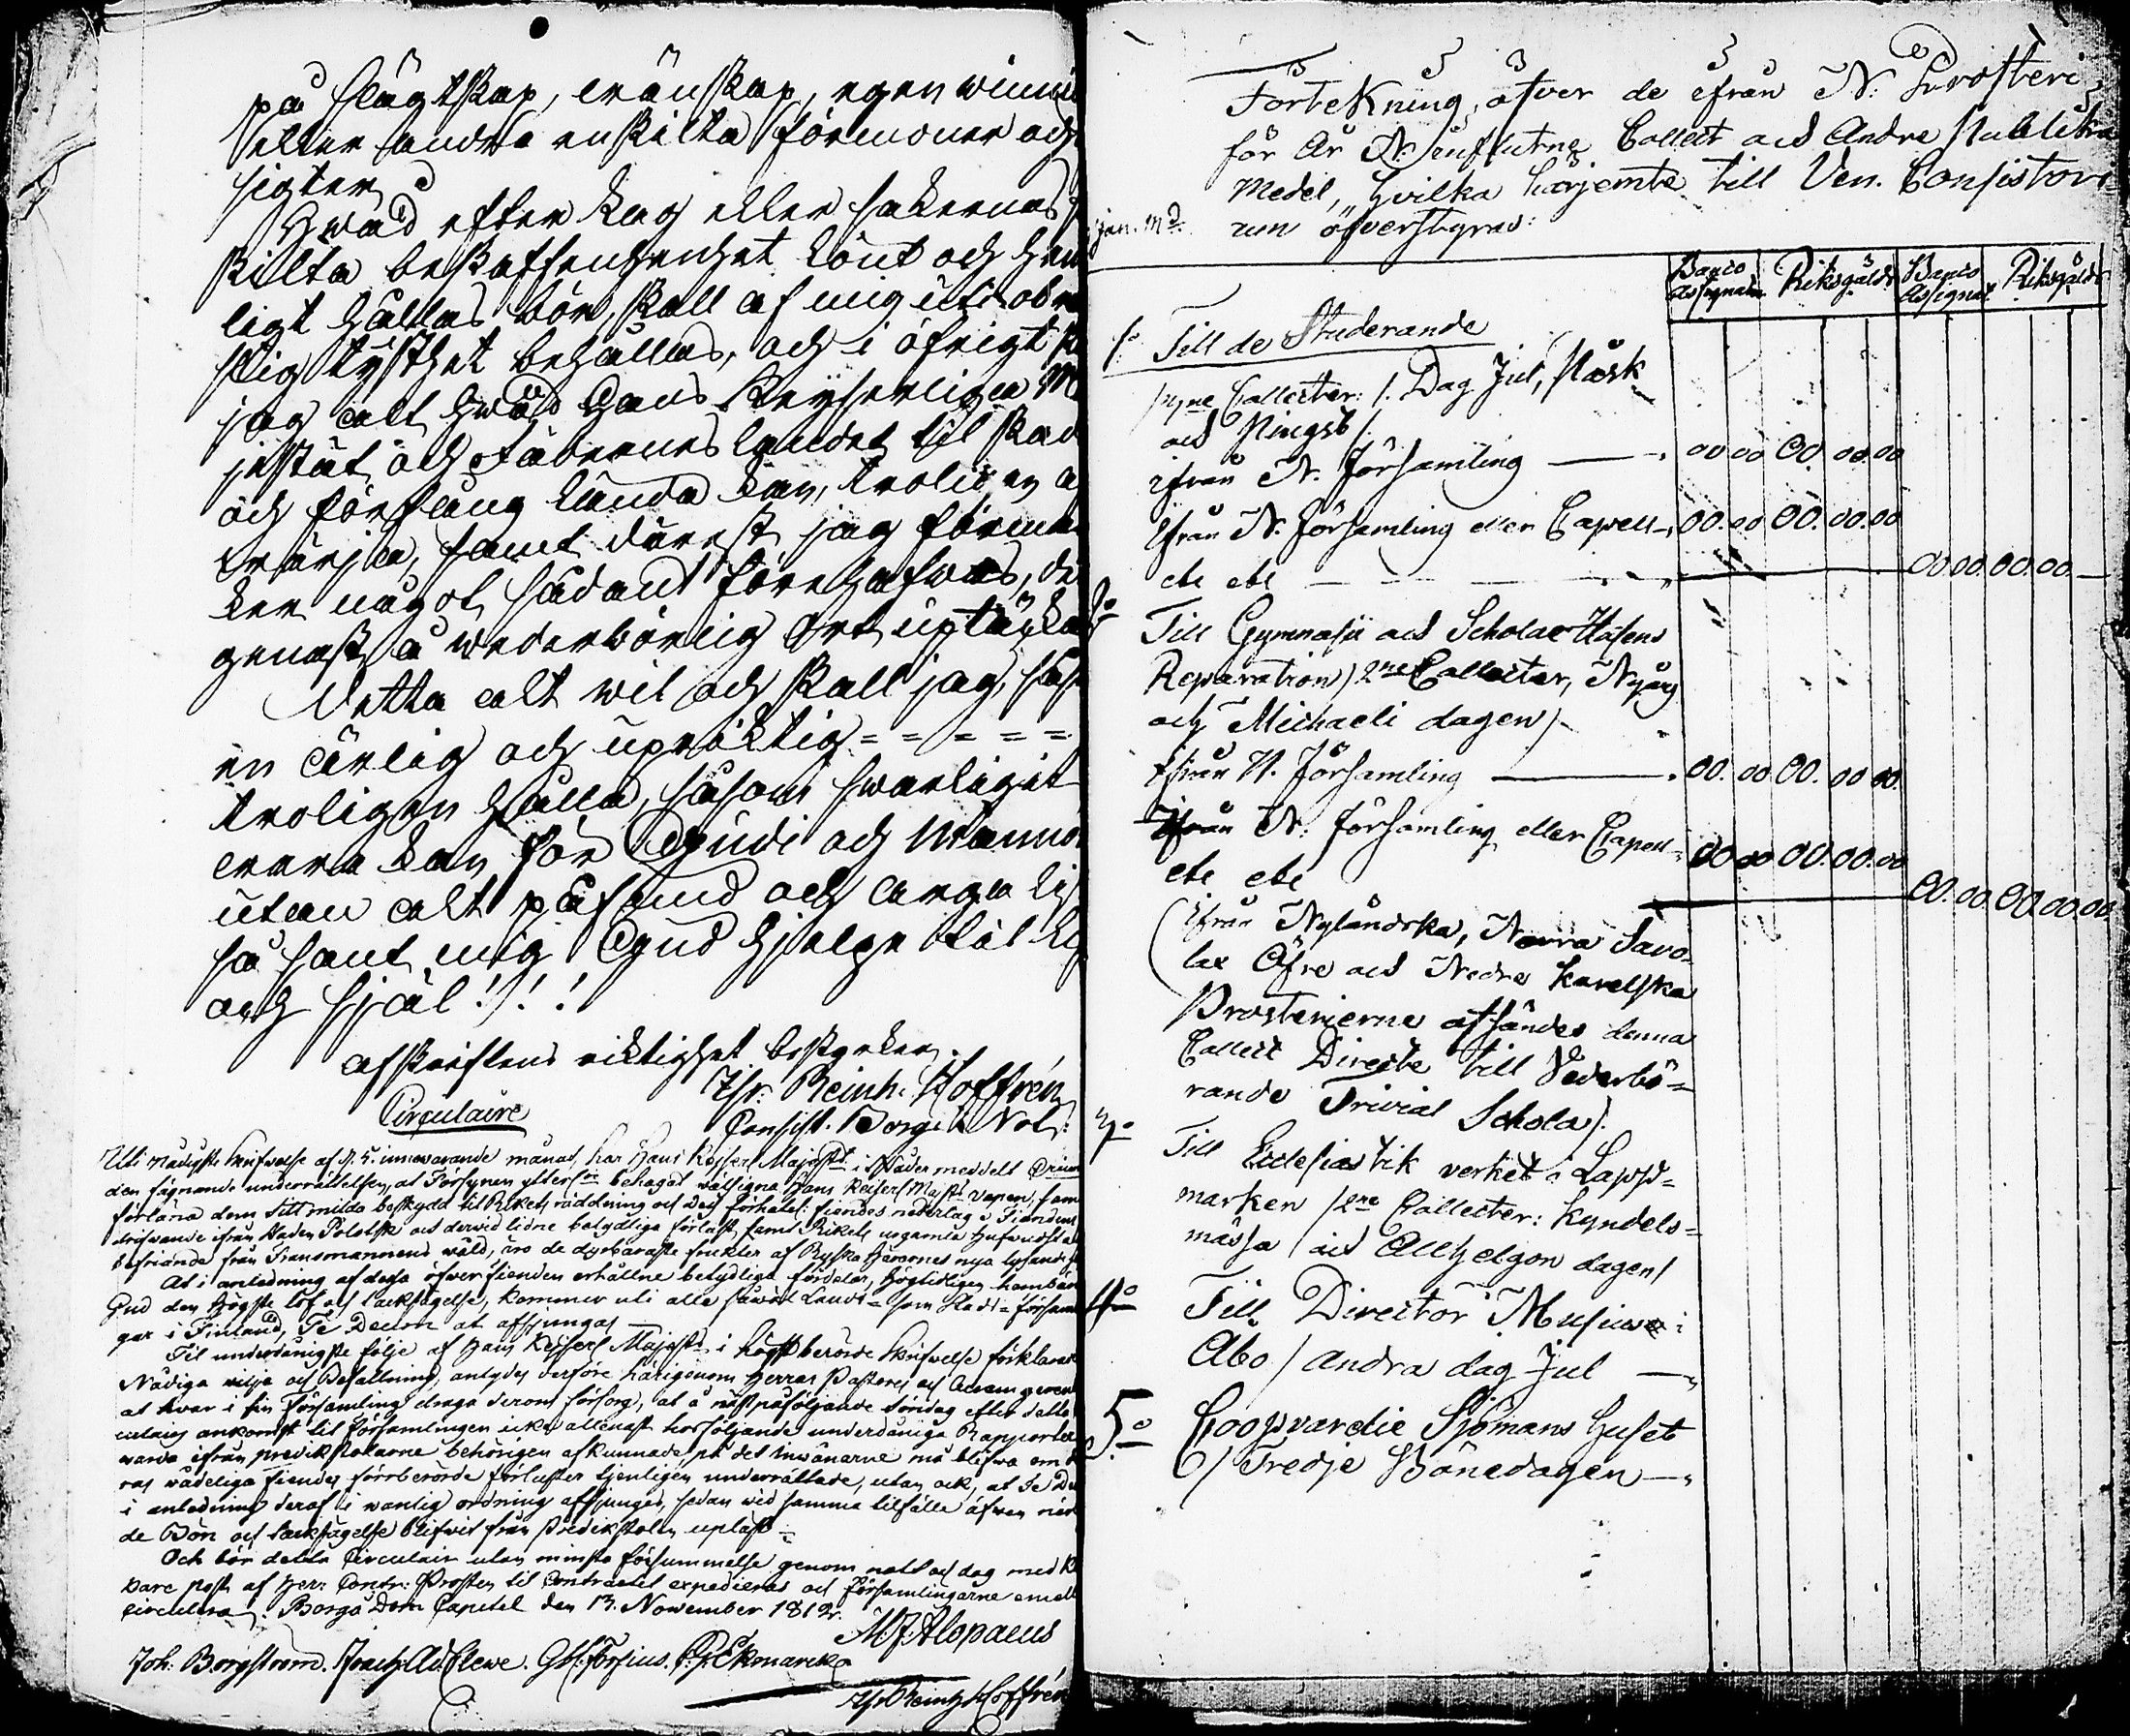 på slägtskap, wänskap, egen winni
eller andra enskilta förmoner och
sigter
Hwad efter Lag eller sakernas
skilta beskaffenhet lönt och hem
ligt hållas bör, skall af mig uti obr
tlig tysthet behållas, och i öfrigt
jag alt hwad Hans Keyserliga M
jestät och Fäderneslandet til skad
och förfång lända kan, troligen a
wärja, samt därest jag förmä
ker något sådant förehafwas, de
genast å wederbörlig Ort uptäcka
Detta alt wil och skall jag, såso
en ärlig och upriktig = = = = =
troligen hålla, såsom swarligit
wara kan för Gudi och Mennis
utan alt påfund och arga lis
så sant mig Gud hjelpe til lif
och Själ!!!
afskriftens riktighet bestyrker.
Ifr: Reinh. Hoffrén
Consist. Borg: Not:
Circulaire
Uti nådigste skrifwelse af d. 5. innewarande månad, har Hans Kejserl Majestt i Nåder meddelt
den fägnande underrättelsen, at Försynen ytterl:n behagat wälsigna Hans Keiserl Majts Vapen, sam
förläna dem sitt milda beskydd til Rikets räddning och des förhatel: fiendes nederlag. Fiendens
drifwande ifrån Staden Polotsk och derwid lidne betydliga förlust, samt Rikets urgamla Hufwudsta
befriande från Fransmannens wåld, äro de dyrbaraste frukter af Ryska Härarnes nya lysande
At i anledning af dessa öfwer fienden erhållne betydliga fördelar, högtidligen hembära
Gud den Högste lof och tacksägelse, kommer uti alle såwäl Lands= som Stads= försam
gar i Finland, Te Deum at afsjungas
Til underdånigste följe af Hans Kejserl Majts i högstberörde skrifwelse förklarade
Nådiga wilje och Befallning, antydes derföre härigenom Herrar Pastorer och
at hwar i sin Församling draga derom försorg, at å nästpåföljande söndag efter dette
culairs ankomst til Församlingen icke allenast hosföljande underdåniga Rapporter
warda ifrån predikstolarne behörigen afkunnade, på det Inwånarne må blifwa om
ras wådeliga fiendes förrberörde förluster tjenligen underrättade, utan ock, at Te De
i anledning deraf i wanlig ordning afsjunges, sedan wid samma tilfälle äfwen
de Bön och tacksägelse blifwit från Predikstolen upläst
Och bör detta Circulair utan minsta försummelse genom natt och dag med
bare post af Herr Contr: Prosten til Contractet expedieras och Församlingarne emell
circulera. Borgå Dom Capitel den 13. November 1812.
M. J. Alopaeus
Joh: Borgström.
Ifr Reinh Hoffrén
Förtekning, öfver de ifrån N: Prosteri
för År N: influtne Collect och Andre Publika
Medel, Hvilka härjemte till Ven. Consistori
um öfverstyras:
Banco Assignater Riksgälds Banco Assignat Riksgälds
1o Till de Studerande
3ne Collecter: /. Dag Jul, Påsk
och Pingst /.
ifrån N. Församling 00 00 00. 00. 00
Ifrån N. Församling eller Capell 00. 00 00. 00. 00
etc etc 00 00. 00. 00.
2o
Till Gymnasii och Scholae Husens
Reparation / 2ne Collecter, Nyårs
och Michaeli dagen /.
Ifrån N. Församling 00. 00 00. 00 00.
Ifrån N. Församling eller Capell 00 00 00. 00. 00
etc etc 00. 00. 00. 00. 00.
(Ifrån Nyländska, Norra Savo-
lax Öfre och Nedre Karelska
Prosterierne afsändes denna
Collect Directe till Vederbö=
rande Trivial Schola).
3o
Till Ecclesiastik verket i Lapp=
marken / 2ne Collecter: Kyndels=
mässa och Allhelgon dagen /
4o Till Director Musices i
Åbo / Andra dag Jul
5o Coopvardie Sjömans Huset
/ Tredje Bönedagen